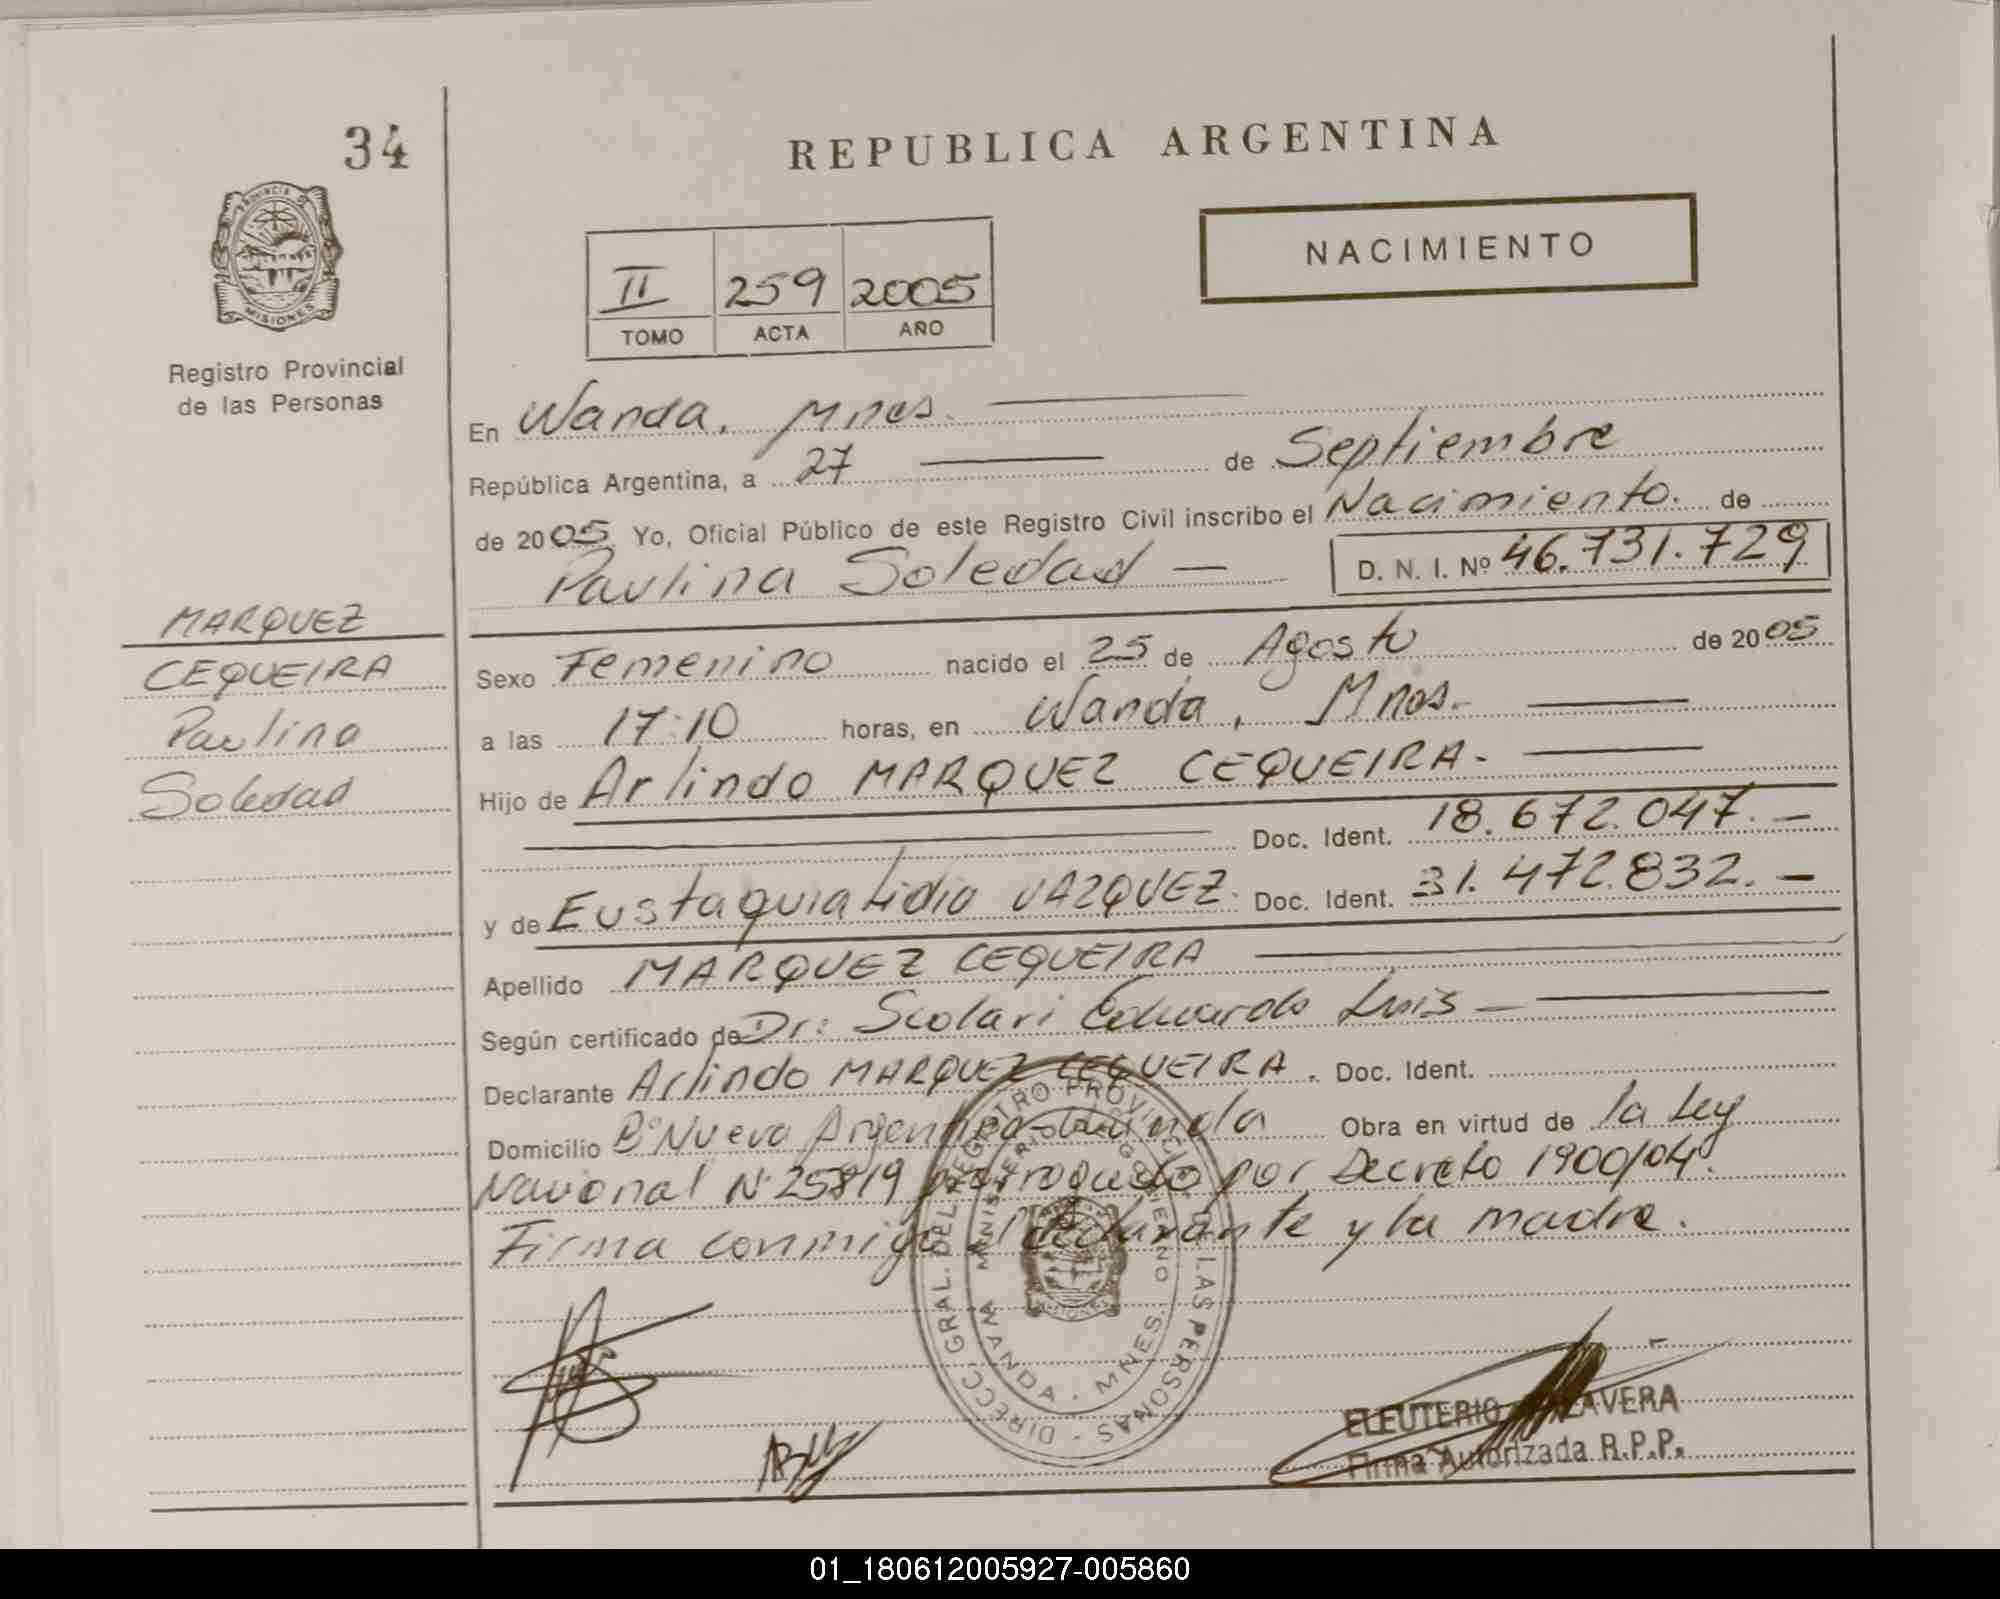 34
REPUBLICA ARGENTINA
PROVINCIA
MISIONES
Registro Provincial
de las Personas
NACIMIENTO
II 259 2005
TOMO ACTA AÑO
En Wanda, Mnes.
República Argentina, a 27 de Septiembre
de 2005 Yo, Oficial Público de este Registro Civil inscribo el Nacimiento. de
Paulina Soledad — D. N. I. Nº 46.731.729
MARQUEZ
CEQUEIRA
Paulina
Soledad
Sexo Femenino nacido el 25 de Agosto de 2005
a las 17:10 horas, en Wanda, Mnes.
Hijo de Arlindo MARQUEZ CEQUEIRA.
Doc. Ident. 18.672.047.—
y de Eustaquia Lidia VAZQUEZ. Doc. Ident. 31.472.832.—
Apellido MARQUEZ CEQUEIRA
Según certificado de Dr: Scolari Eduardo Luis —
Declarante Arlindo MARQUEZ CEQUEIRA. Doc. Ident.
Domicilio Bº Nueva Argentina-Wanda Obra en virtud de la Ley
Nacional Nº 25819 prorrogado por Decreto 1900/04.
Firma conmigo declarante y la madre.
DIRECC. GRAL. DEL REGISTRO PROVINCIAL DE LAS PERSONAS
MINISTERIO DE GOBIERNO
WANDA - MNES.
MISIONES
ELEUTERIO
Firma Autorizada R.P.P.
01_180612005927-005860